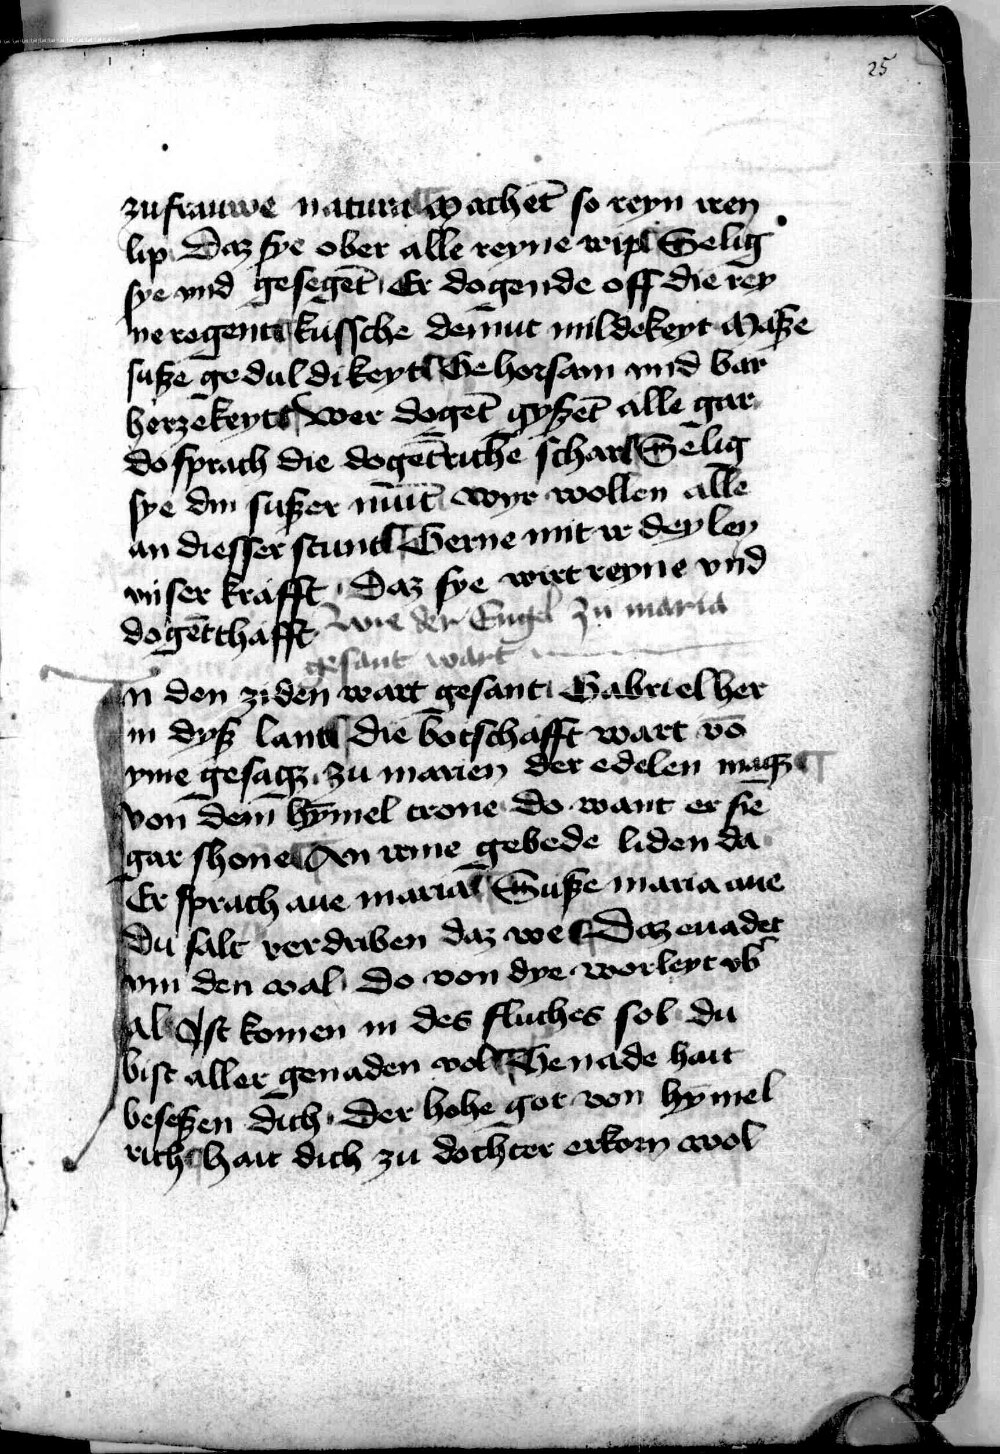 25
zu frauwe natura Machet̄ so reyn iren
lip Daz sye ober alle reyne wip Selig
sye vnd gesegēt Er dogende off die rey
ne regent kussche demut mildekeyt Maße
suße geduldikeyt Gehorsam vnd bar
herzēkeyt wer dogēt gyßet alle gar
do sprach die dogētriche schar Selig
sye din sußer mūt wyr wollen alle
an diesser stunt Gerne mit ir deylen
vnser krafft Daz sye wirt reyne vnd
dogētthafft wie der Engel zu maria
gesant wart
In den ziden wart gesant Gabriel her
in dyß lant die botschafft wart vō
yme gesagz zu marien der edelen magz
von dem hȳmel trone do want er sie
gar shone An irme gebede liden da
Er sprach aue maria Suße maria aue
Du salt verdriben daz we Daz eua det
vm den wal Do von dye worleyt vb̄
al Ist komen in des fluches sol du
bist aller genaden vol Genade hait
beseßen dich Der hohe got von hȳmel
rich Hait dich zu dochter erkorn wol